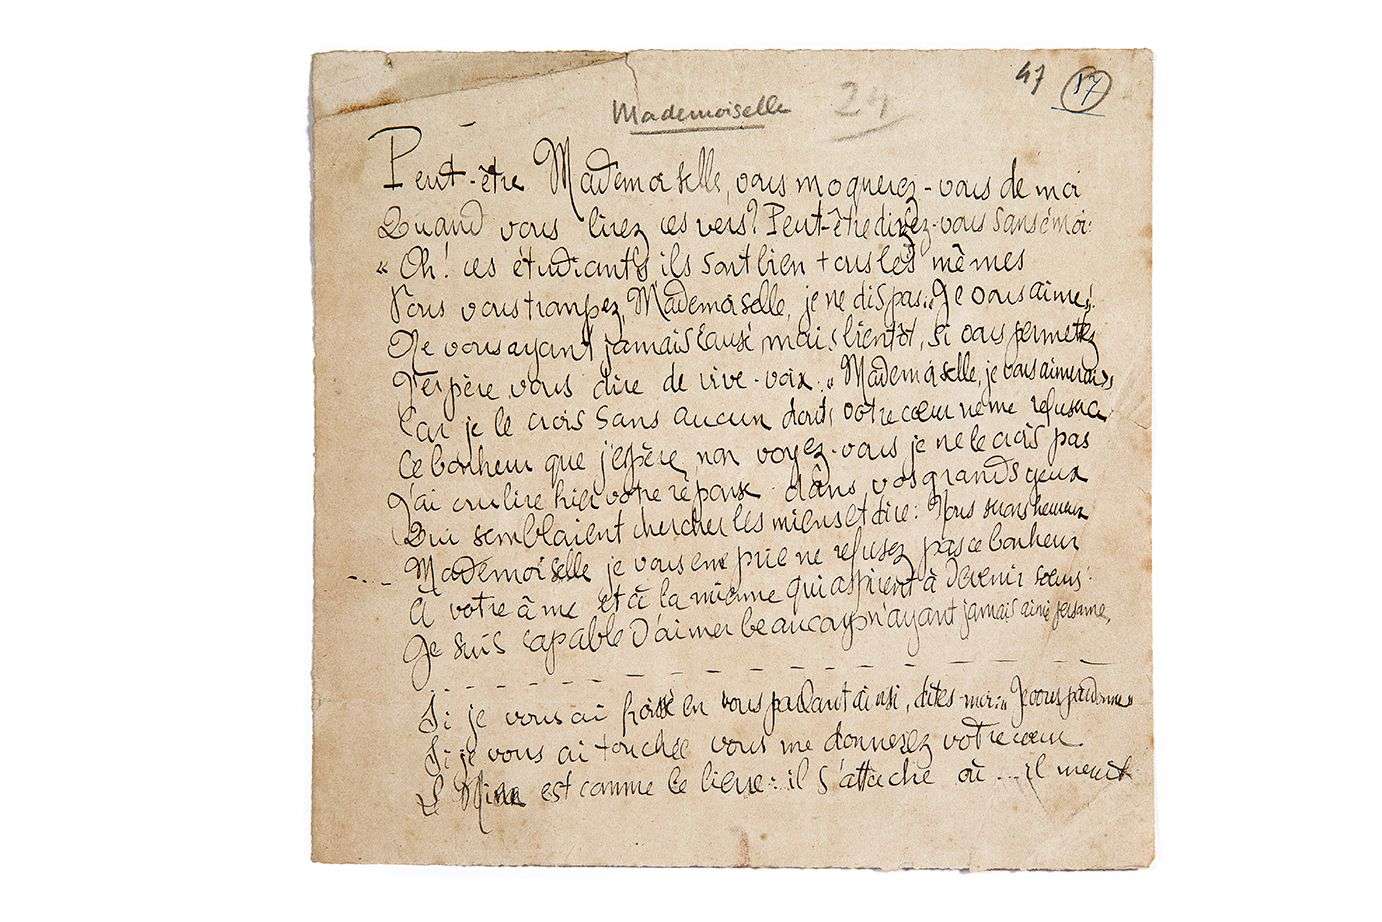 47 17
Mademoiselle 24
Peut-être Mademoiselle, vous moquerez-vous de moi
Quand vous lirez ces vers? Peut-être direz-vous sans émoi:
« Oh! ces étudiants ils sont bien tous les mêmes
Vous vous trompez, Mademoiselle, je ne dis pas: « Je vous aime »!
Ne vous ayant jamais causé, mais bientôt, si vous permettez
J'espère vous dire de vive-voix: « Mademoiselle, je vous aimerais »
Car je le crois sans aucun doute, votre cœur ne me refusera
Ce bonheur que j'espère, non voyez-vous je ne le crois pas
J'ai cru lire hier votre réponse dans vos grands yeux
Qui semblaient chercher les miens et dire: Nous serons heureux
Mademoiselle je vous en prie ne refusez pas ce bonheur
A votre âme et à la mienne qui aspirent à devenir sœurs:
Je suis capable d'aimer beaucoup n'ayant jamais aimé personne,
Si je vous ai froissée en vous parlant ainsi, dites-moi: « Je vous pardonne »
Si je vous ai touchée vous me donnerez votre cœur
Le est comme le lierre: il s'attache où ... il meurt